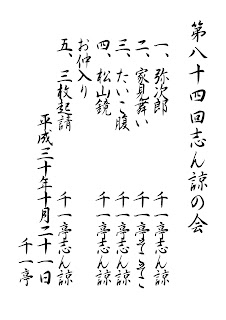 第八十四回志ん諒の会
一、弥次郎　千一亭志ん諒
二、家見舞い　千一亭そそそ
三、たいこ腹　千一亭志ん諒
四、松山鏡　千一亭志ん諒
お仲入り
五、三枚起請　千一亭志ん諒
平成三十年十月二十一日
千一亭